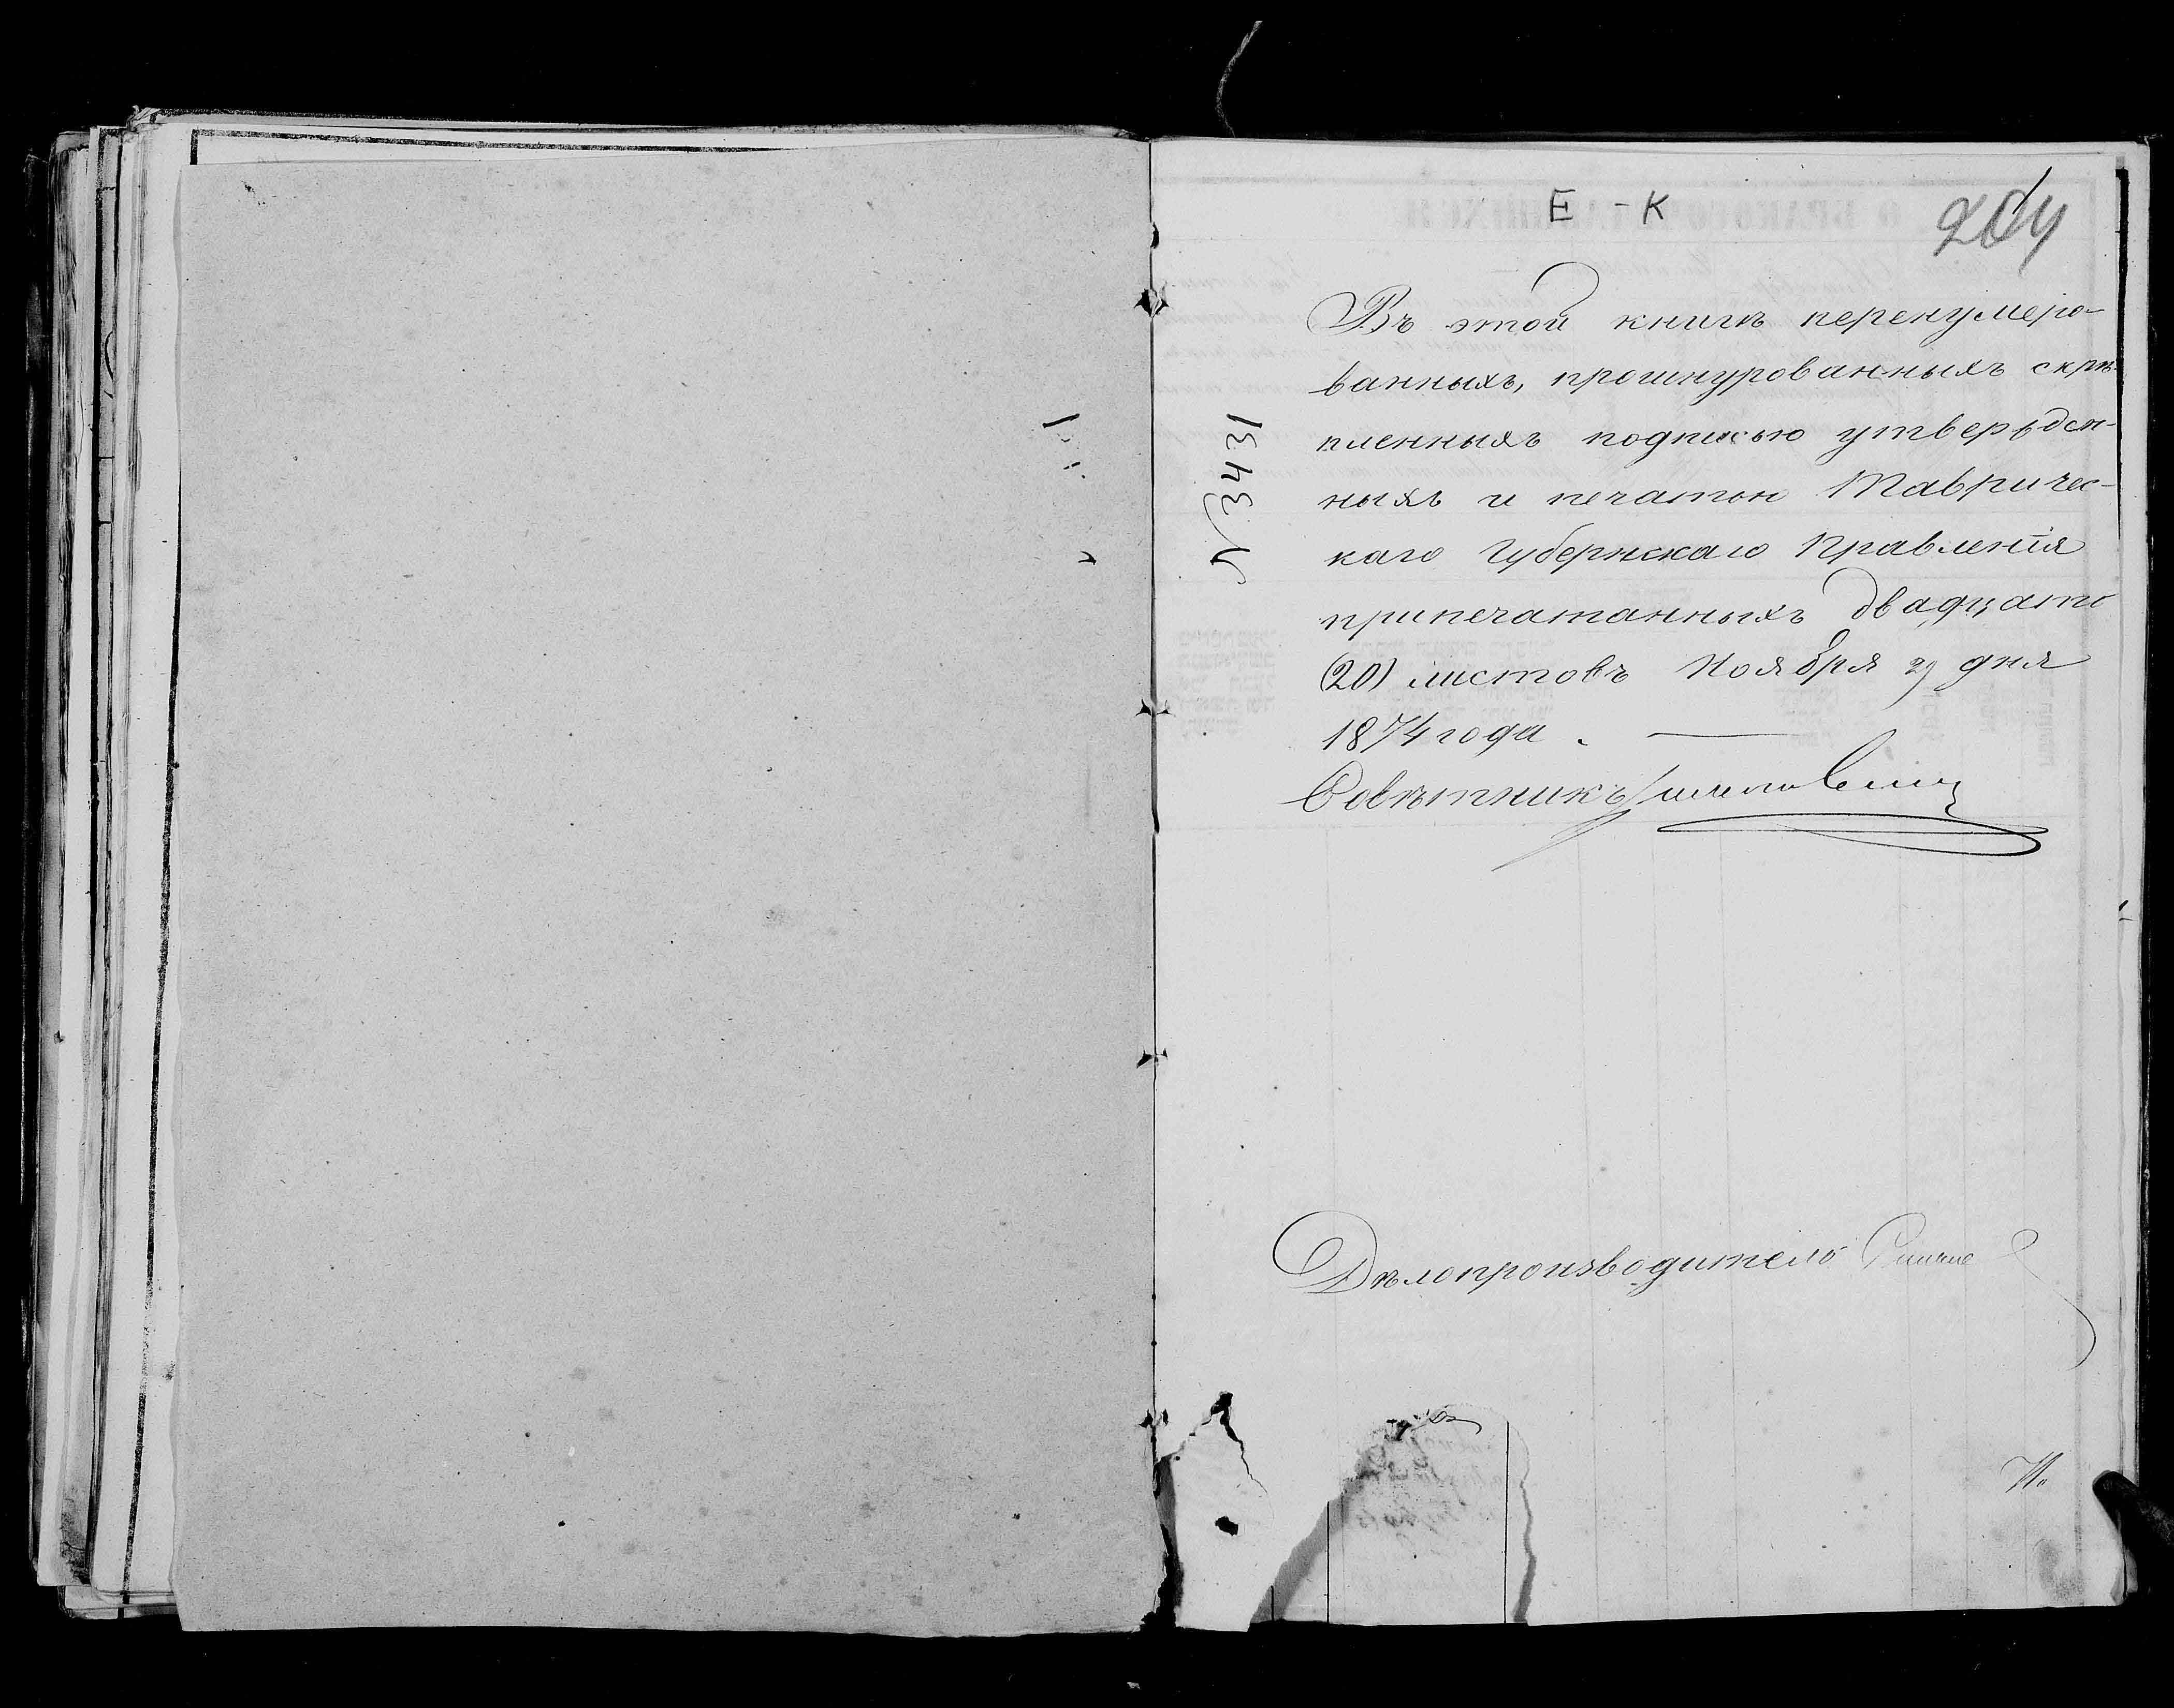 Е - К
204
Въ этой книгѣ перенумеро-
ванныхъ, прошнурованныхъ скрѣ-
пленныхъ подписью утвержден-
ныхъ и печатью Тавричес-
каго Губернскаго Правленія
припечатанныхъ двадцать
(20) листовъ Ноября 29 дня
1874 года.
Совѣтникъ
№ 3431
Дѣлопроизводитель